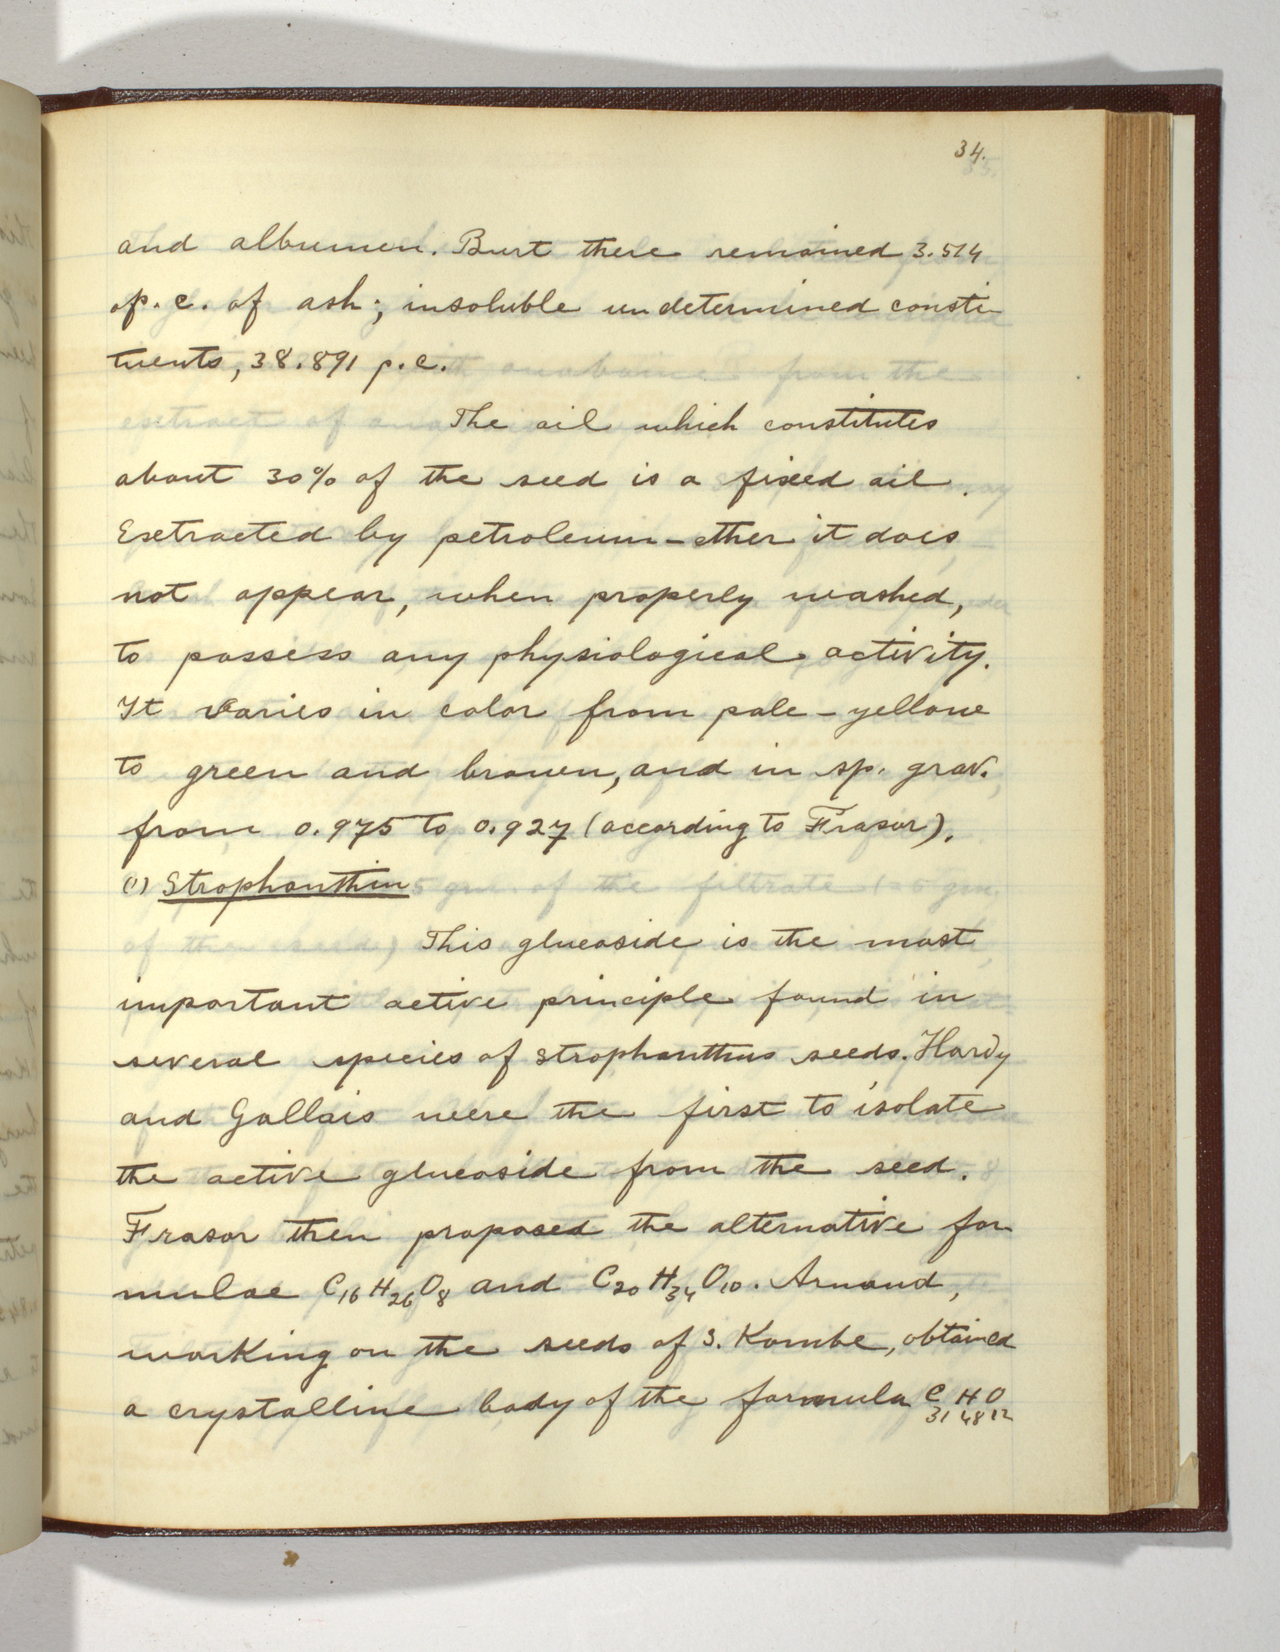 34.
and albumen. Burt there remained 3.514
p.c. of ash; insoluble undetermined consti-
tuents, 38.891 p.c.
The oil which constitutes
about 30% of the seed is a fixed oil.
Extracted by petroleum-ether it does
not appear, when properly washed,
to possess any physiological activity.
It varies in color from pale-yellow
to green and brown, and in sp. grav.
from 0.975 to 0.927 (according to Frasor).
(1) Strophanthin
This glucoside is the most
important active principle found in
several species of strophanthus seeds. Hardy
and Gallais were the first to isolate
the active glucoside from the seed.
Frasor then proposed the alternative for
mulae C₁₆H₂₆O₈ and C₂₀H₃₄O₁₀. Arnaud,
working on the seeds of S. Kombe, obtained
a crystalline body of the formula C₃₁H₄₈O₁₂